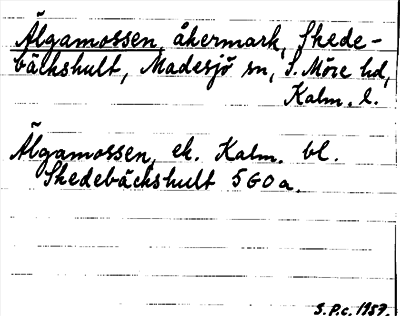 Älgamossen, åkermark, Skede-
bäckshult, Madesjö sn, S. Möre hd,
Kalm. l.
Älgamossen, ek. Kalm. bl.
Skedebäckshult 5G0a.
S.P.c. 1959.